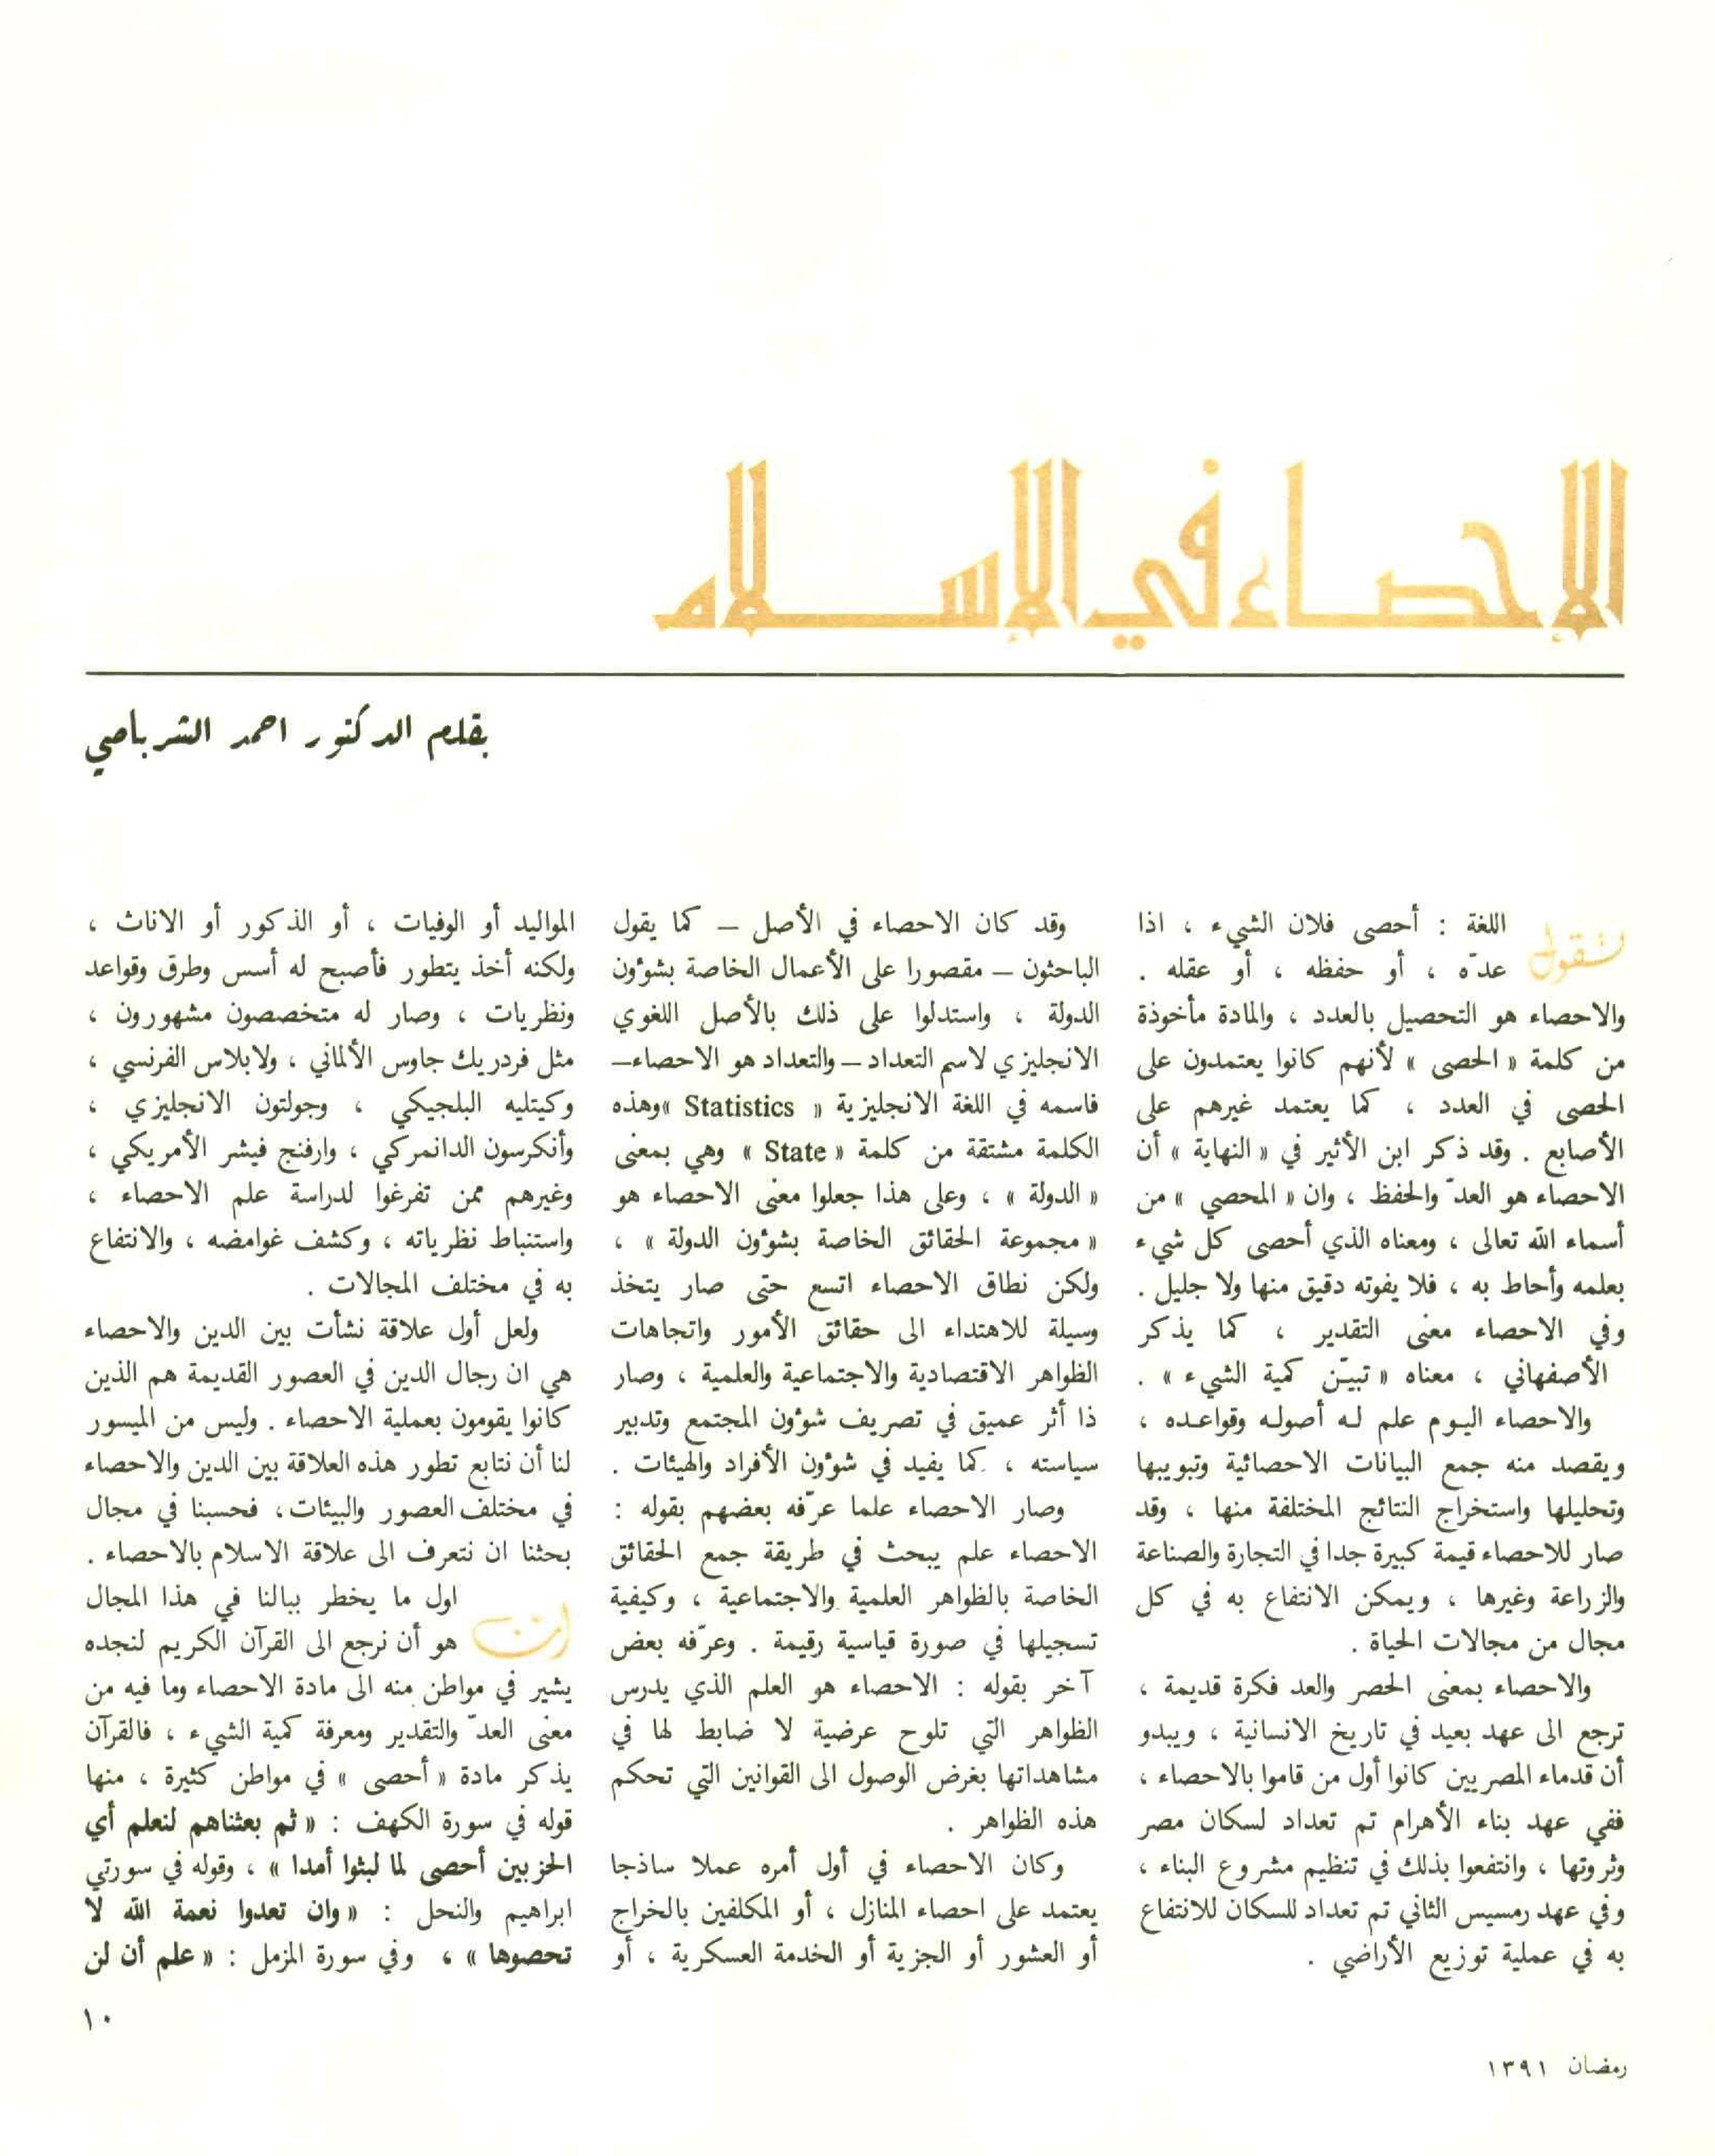 الإحصاء في الإسلام
بقلم الدكتور احمد الشرباصي
تقول اللغة : أحصى فلان الشيء ، اذا
عدّه ، أو حفظه ، أو عقله .
والاحصاء هو التحصيل بالعدد ، والمادة مأخوذة
من كلمة « الحصى » لأنهم كانوا يعتمدون على
الحصى في العدد ، كما يعتمد غيرهم على
الأصابع . وقد ذكر ابن الأثير في « النهاية » أن
الاحصاء هو العدّ والحفظ ، وان « المحصي » من
أسماء الله تعالى ، ومعناه الذي أحصى كل شيء
بعلمه وأحاط به ، فلا يفوته دقيق منها ولا جليل .
وفي الاحصاء معنى التقدير ، كما يذكر
الأصفهاني ، معناه « تبيّن كمية الشيء » .
والاحصاء اليوم علم له أصوله وقواعده ،
ويقصد منه جمع البيانات الاحصائية وتبويبها
وتحليلها واستخراج النتائج المختلفة منها ، وقد
صار للاحصاء قيمة كبيرة جدا في التجارة والصناعة
والزراعة وغيرها ، ويمكن الانتفاع به في كل
مجال من مجالات الحياة .
والاحصاء بمعنى الحصر والعد فكرة قديمة ،
ترجع الى عهد بعيد في تاريخ الانسانية ، ويبدو
أن قدماء المصريين كانوا أول من قاموا بالاحصاء ،
ففي عهد بناء الأهرام تم تعداد لسكان مصر
وثروتها ، وانتفعوا بذلك في تنظيم مشروع البناء ،
وفي عهد رمسيس الثاني تم تعداد للسكان للانتفاع
به في عملية توزيع الأراضي .
وقد كان الاحصاء في الأصل – كما يقول
الباحثون – مقصورا على الأعمال الخاصة بشؤون
الدولة ، واستدلوا على ذلك بالأصل اللغوي
الانجليزي لاسم التعداد – والتعداد هو الاحصاء–
فاسمه في اللغة الانجليزية « Statistics »وهذه
الكلمة مشتقة من كلمة « State » وهي بمعنى
« الدولة » ، وعلى هذا جعلوا معنى الاحصاء هو
« مجموعة الحقائق الخاصة بشؤون الدولة » ،
ولكن نطاق الاحصاء اتسع حتى صار يتخذ
وسيلة للاهتداء الى حقائق الأمور واتجاهات
الظواهر الاقتصادية والاجتماعية والعلمية ، وصار
ذا أثر عميق في تصريف شؤون المجتمع وتدبير
سياسته ، كما يفيد في شؤون الأفراد والهيئات .
وصار الاحصاء علما عرّفه بعضهم بقوله :
الاحصاء علم يبحث في طريقة جمع الحقائق
الخاصة بالظواهر العلمية والاجتماعية ، وكيفية
تسجيلها في صورة قياسية رقيمة . وعرّفه بعض
آخر بقوله : الاحصاء هو العلم الذي يدرس
الظواهر التي تلوح عرضية لا ضابط لها في
مشاهداتها بغرض الوصول الى القوانين التي تحكم
هذه الظواهر .
وكان الاحصاء في أول أمره عملا ساذجا
يعتمد على احصاء المنازل ، أو المكلفين بالخراج
أو العشور أو الجزية أو الخدمة العسكرية ، أو
المواليد أو الوفيات ، أو الذكور أو الاناث ،
ولكنه أخذ يتطور فأصبح له أسس وطرق وقواعد
ونظريات ، وصار له متخصصون مشهورون ،
مثل فردريك جاوس الألماني ، ولابلاس الفرنسي ،
وكيتليه البلجيكي ، وجولتون الانجليزي ،
وأنكرسون الدانمركي ، وارفنج فيشر الأمريكي ،
وغيرهم ممن تفرغوا لدراسة علم الاحصاء ،
واستنباط نظرياته ، وكشف غوامضه ، والانتفاع
به في مختلف المجالات .
ولعل أول علاقة نشأت بين الدين والاحصاء
هي ان رجال الدين في العصور القديمة هم الذين
كانوا يقومون بعملية الاحصاء . وليس من الميسور
لنا أن نتابع تطور هذه العلاقة بين الدين والاحصاء
في مختلف العصور والبيئات، فحسبنا في مجال
بحثنا ان نتعرف الى علاقة الاسلام بالاحصاء .
ان اول ما يخطر ببالنا في هذا المجال
هو أن نرجع الى القرآن الكريم لنجده
يشير في مواطن منه الى مادة الاحصاء وما فيه من
معنى العدّ والتقدير ومعرفة كمية الشيء ، فالقرآن
يذكر مادة « أحصى » في مواطن كثيرة ، منها
قوله في سورة الكهف : « ثم بعثناهم لنعلم أي
الحزبين أحصى لما لبثوا أمدا » ، وقوله في سورتي
ابراهيم والنحل : « وان تعدوا نعمة الله لا
تحصوها » ، وفي سورة المزمل : « علم أن لن
١٠
رمضان ١٣٩١